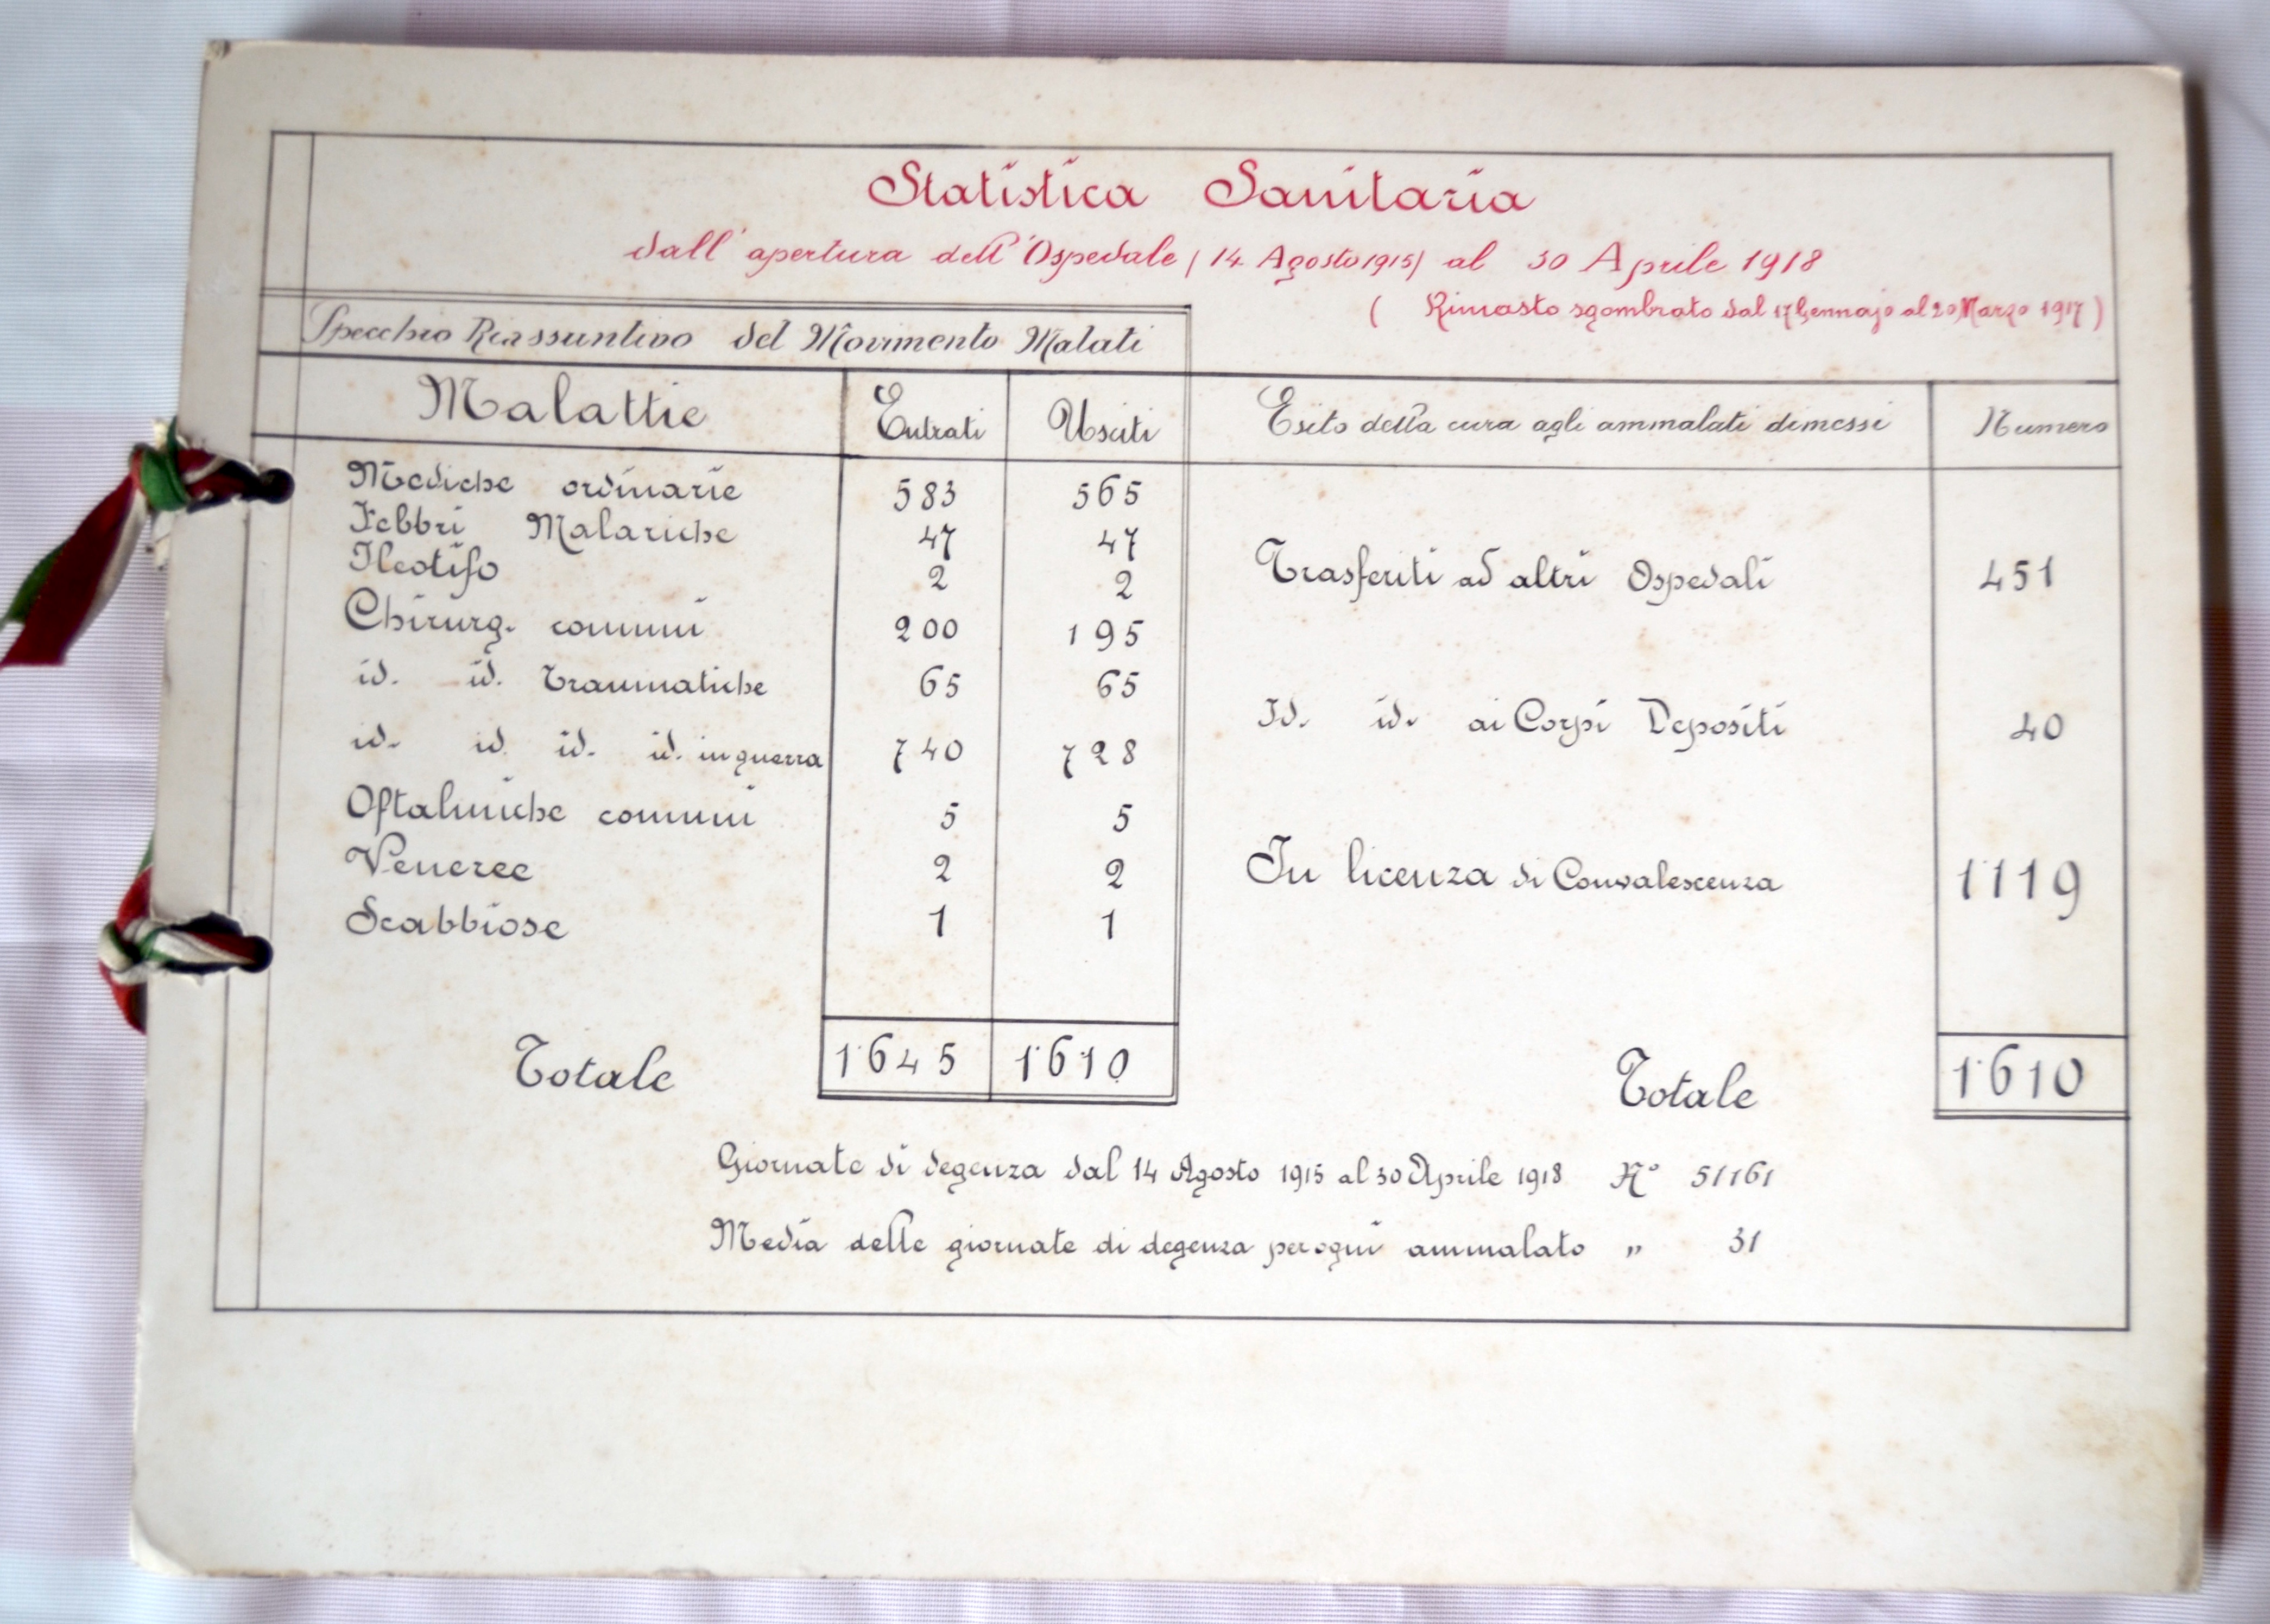 Statistica Sanitaria
dall'apertura dell'Ospedale (14 Agosto 1915) al 30 Aprile 1918
( Rimasto sgombrato dal 17 Gennajo al 20 Marzo 1917 )
Specchio Riassuntivo del Movimento Malati
Malattie Entrati Usciti Esito della cura agli ammalati dimessi Numero
Mediche ordinarie 583 565
Febbri Malariche 47 47
Ileotifo 2 2 Trasferiti ad altri Ospedali 451
Chirurg. comuni 200 195
id. id. Traumatiche 65 65
Id. id. ai Corpi Depositi 40
id. id. id. id. in guerra 740 728
Oftalmiche comuni 5 5
Veneree 2 2 In licenza di Convalescenza 1119
Scabbiose 1 1
Totale 1645 1610 Totale 1610
Giornate di degenza dal 14 Agosto 1915 al 30 Aprile 1918 N° 51161
Media delle giornate di degenza per ogni ammalato „ 31